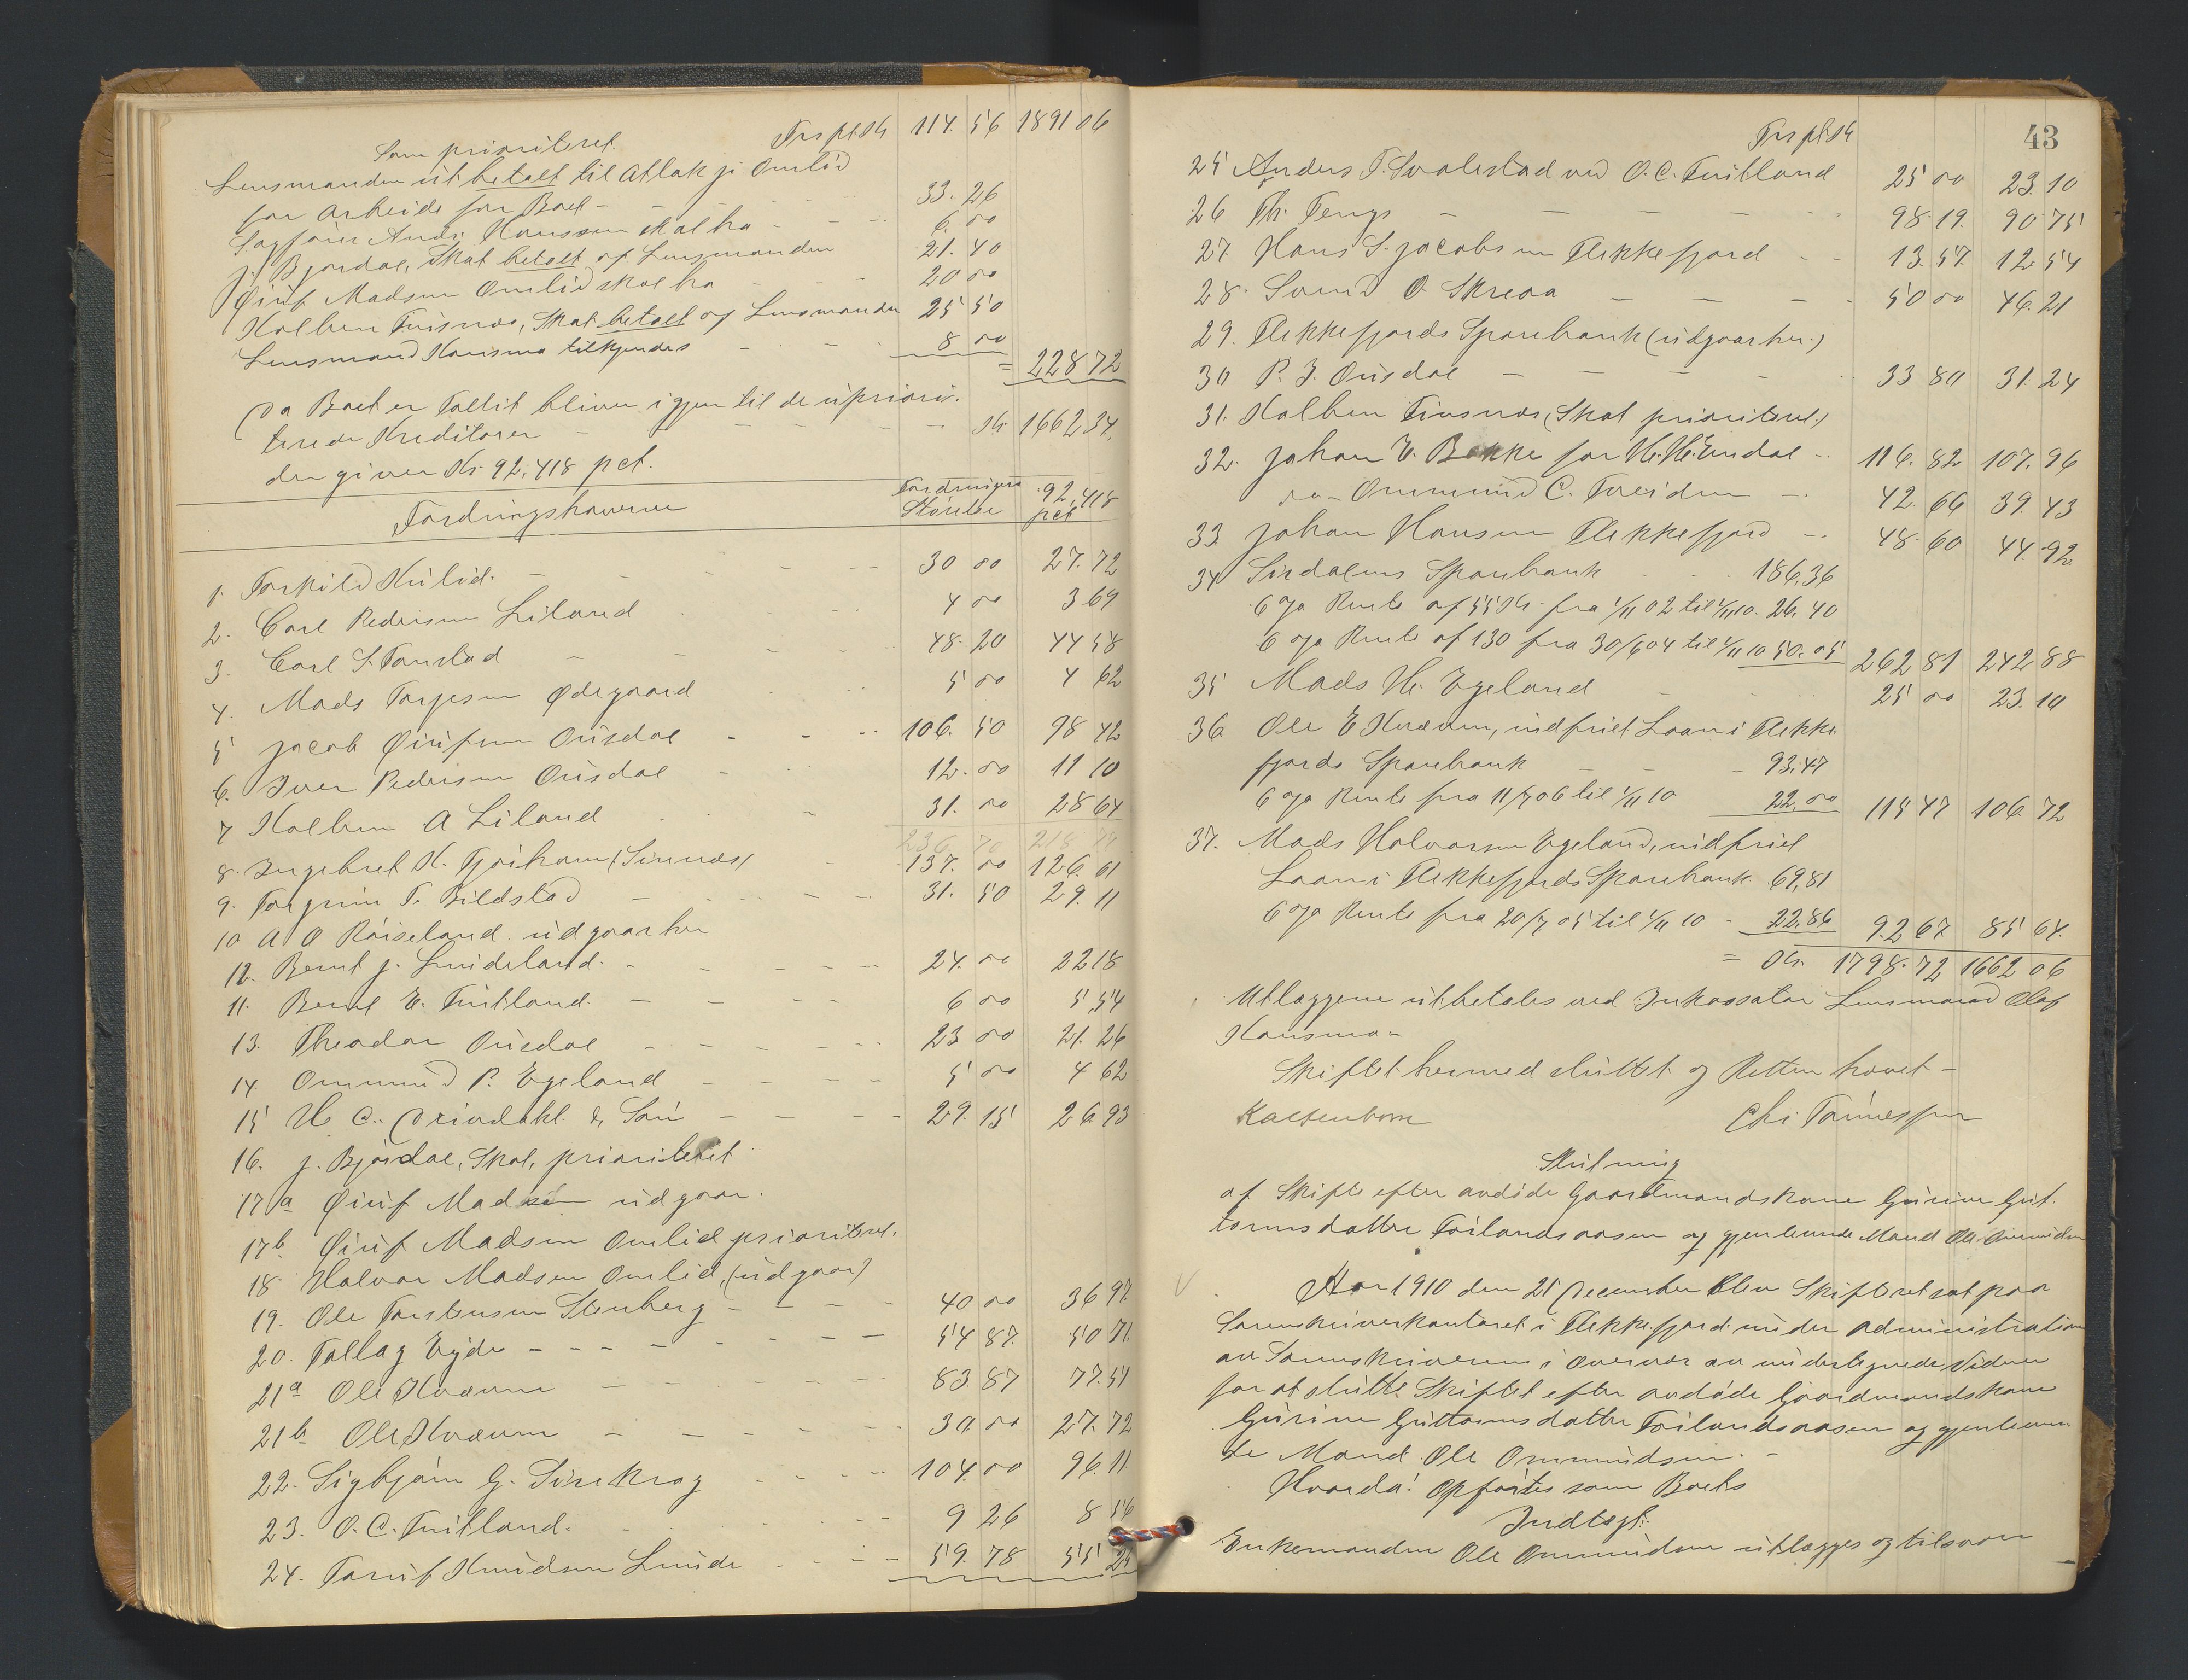 Trspt Kr 114. 56 1891 06
Som prioriteret.
Lensmanden utbetalt til Atlak J. Omlid
for Arbeide for Boet - 33. 26
Sagfører Andr. Hanssen skal ha - 6. 00
J. Bjørdal, Skat betalt af Lensmanden 21. 40
Øiuf Madsen Omlid skal ha 20 00
Kolben Tuisnæs, Skat betalt af Lensmanden 25 50
Lensmand Hansma tilkjendes - 8 00
= 228 72
Da Boet er Fallit bliver igjen til de upriori-
terede Kreditorer - Kr. 1662 34.
der giver Kr. 92,418 pct.
Fordringshaverne Fordringens Størrelse 92,418 pct
1. Torkild Kulid. - 30 00 27. 72
2. Carl Pedersen Liland 4 00 3 69
3. Carl S. Tonstad - 48. 20 44 58
4. Mads Torjesen Ødegaard 5 00 4 62
5 Jacob Øiufsen Ousdal - 106. 50 98 42
6. Iver Pedersen Ousdal - 12. 00 11 10
7 Kolben A Liland - 31. 00 28 64
236 70 218 77
8. Ingebret K. Tjørhom (Sinnæs) 137. 00 126. 61
9. Torgrim T. Bildstad - 31. 50 29. 11
10 A O Røiseland. udgaar her
12. Bernt J. Smideland. - 24. 00 22 18
11. Bernt E. Tuitland. - 6 00 5,54
13. Theodor Ousdal - 23 00 21. 26
14. Ommund P. Egeland - 5 00 4 62
15 H. C. Drivdahl & Søn - 29. 15 26 93
16. J. Bjørdal, Skat, prioriteret
17a Øiuf Madsen udgaar.
17b Øiuf Madsen Omlid prioriteret.
18. Halvor Madsen Omlid, (udgaar)
19. Ole Torstensen Stenberg - 40 00 36 97.
20. Tollag Eyde - - - 54 87. 50 71.
21a Ole Kvævum - 83. 87 77. 51
21b Ole Kvævum - 30. 00 27. 72
22. Sigbjørn G. Sirekrog 104. 00 96. 11
23. O. C. Tuitland. 9 26 8 56
24. Toruf Knudsen Lunde - 59. 78 55 25
43
Trspt Kr
25 Anders T. Svalestad ved O. C. Tuitland 25 00 23. 10
26 Th. Tengs - 98. 19. 90. 75
27. Hans S. Jacobsen Flekkefjord - 13. 57. 12. 54
28. Svend O. Skreaa - 50 00 46. 21
29. Flekkefjords Sparebank (udgaar her.)
30 P. I. Ousdal - 33 80 31. 24
31. Kolben Tuisnæs, (Skat prioriteret.)
32. Johan E. Bakke for H. H. Eendal - 116. 82 107. 96
do - Ommund C. Treiden - 42. 66 39. 43
33. Johan Hansen Flekkefjord - 48. 60 44. 92
34 Sirdalens Sparebank 186,36
6 % Rente af 55 Kr fra 1/11 02 til 1/11 10. 26. 40
6 % Rente af 130 fra 30/6 04 til 1/11 10 50. 05 262 81 242 88
35 Mads H. Egeland - 25 00 23. 10
36 Ole E Kvævum, indfriet Laan i Flekke-
fjords Sparebank - 93. 47
6 % Rente fra 11/7 06 til 1/11 10 22,00 115 47 106. 72
37. Mads Halvorsen Egeland, indfriet
Laan i Flekkefjords Sparebank 69,81
6 % Rente fra 20/7 05 til 1/11 10 - 22,86 92 67. 85 64.
= Kr. 1798. 72 1662 06
Utlæggene utbetales ved Inkassator Lensmand Olaf
Hansma -
Skiftet hermed sluttet og Retten hævet -
Kaltenborn Chr. Tønnessen
Slutning
af Skifte efter avdøde Gaardmandskone Gurine Gut-
tormsdatter Foilandsaasen og gjenlevende Mand Ole Ommundsen
Aar 1910 den 21 December blev Skifteret sat paa
Sorenskriverkontoret i Flekkefjord under administration
av Sorenskriveren i overvær av undertegnede Vidner
for at slutte Skiftet efter avdøde Gaardmandskone
Gurine Guttormsdatter Foilandsaasen og gjenleven-
de Mand Ole Ommundsen. -
Hvorda! Opførtes som Boets
Indtægt:
Enkemanden Ole Ommundsen utlægges og tilsvarer